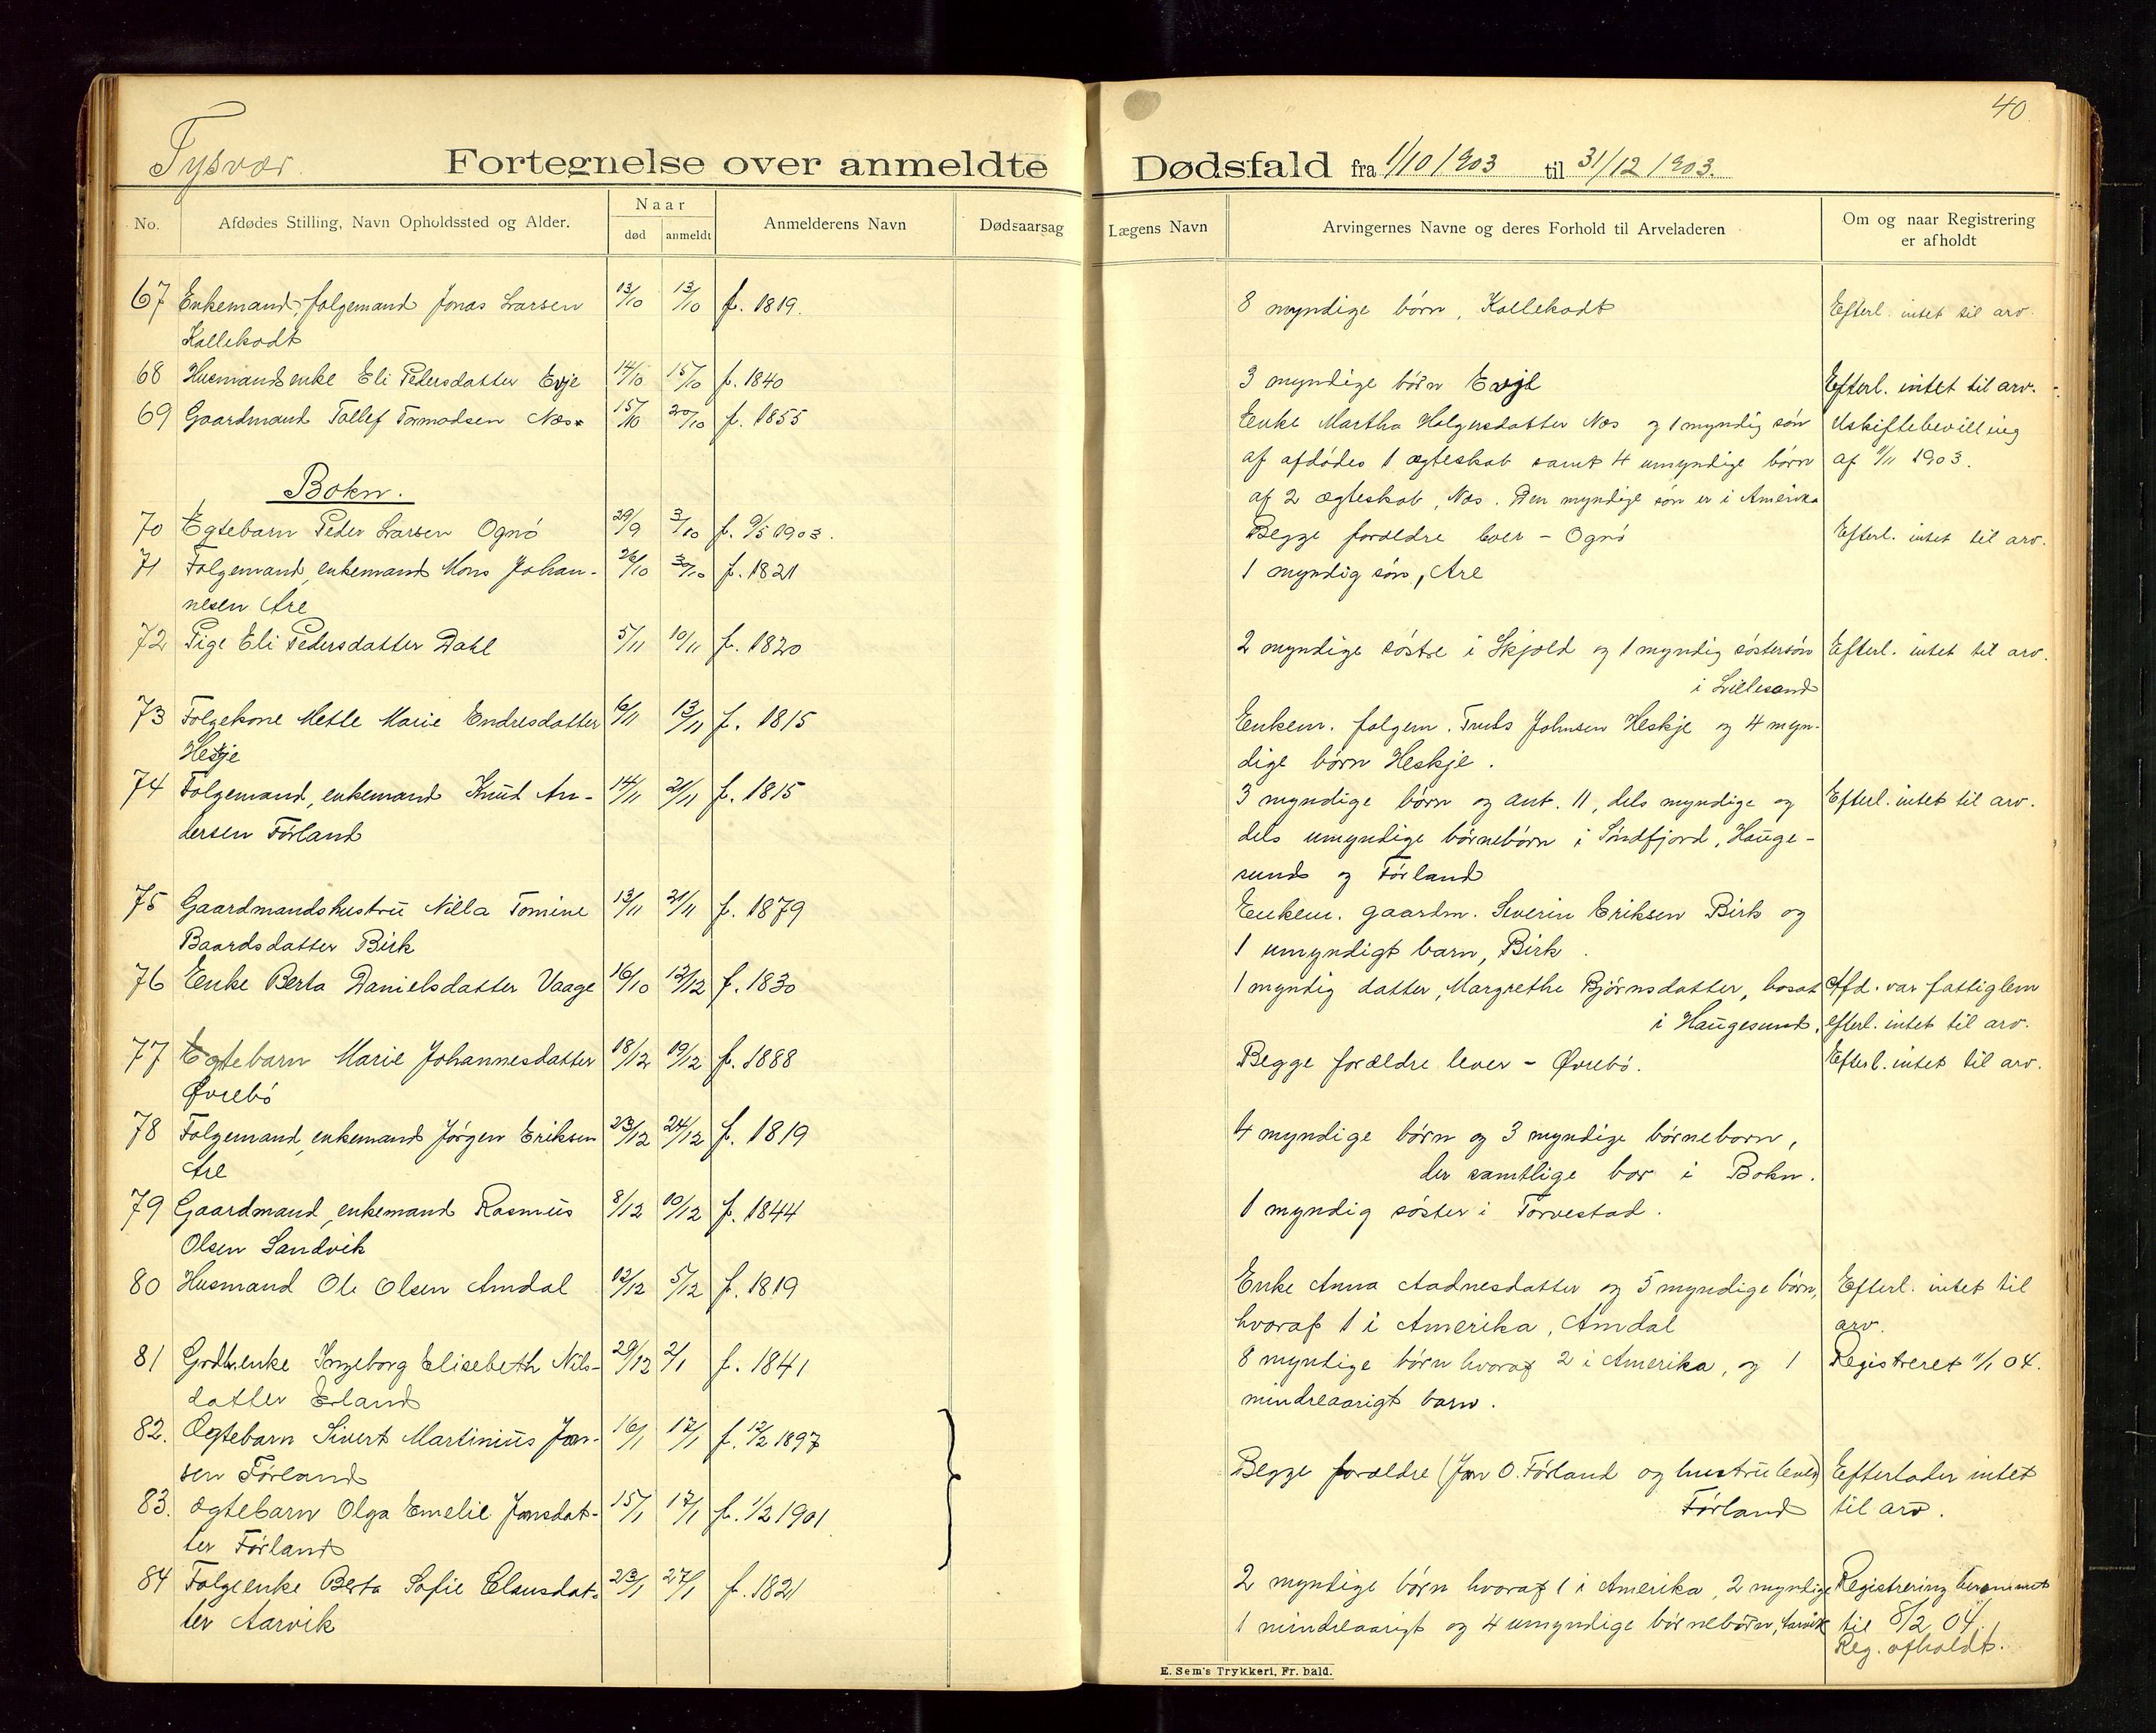 40
Tysvær.
Fortegnelse over anmeldte Dødsfald fra 1/10 1903 til 31/12 1903.
No. Afdødes Stilling, Navn Opholdssted og Alder. Naar Anmelderens Navn Dødsaarsag Lægens Navn Arvingernes Navne og deres Forhold til Arveladeren Om og naar Registrering
død anmeldt er afholdt
67 Enkemand, folgemand Jonas Larsen 13/10 13/10 f. 1819. 8 myndige börn, Kallekodt Efterl. intet til arv.
Kallekodt
68 Husmandsenke Eli Pedersdatter Evje 14/10 15/10 f. 1840 3 myndige børn Evje Efterl. intet til arv.
69 Gaardmand Tollef Tormodsen Næs 15/10 20/10 f. 1855 Enke Martha Holgersdatter Næs og 1 myndig søn Uskiftebevilling
af afdødes 1 ægteskab samt 4 umyndige børn af 11/11 1903.
af 2 ægteskab, Næs. Den myndige søn er i Amerika
Bokn.
70 Egtebarn Peder Larsen Ognö 29/9 3/10 f. 9/5 1903. Begge forældre lever - Ognö Efterl. intet til arv.
71 Folgemand, enkemand Mons Johan- 26/10 30/10 f. 1821 1 myndig søn, Are
nesen Are
72 Pige Eli Pedersdatter Dahl 5/11 10/11 f. 1820 2 myndige söstre i Skjold og 1 myndig söstersön Efterl. intet til arv.
i Lillesand
73 Folgekone Mette Marie Endresdatter 6/11 13/11 f. 1815 Enkem. folgem. Truls Johnsen Heskje og 4 myn-
Heskje dige børn Heskje.
74 Folgemand, enkemand Knud An- 14/11 21/11 f. 1815 3 myndige børn og ant. 11, dels myndige og Efterl. intet til arv.
dersen Førland dels umyndige börnebörn i Söndfjord, Hauge-
sund og Førland
75 Gaardmandshustru Nilla Tomine 13/11 21/11 f. 1879 Enkem. gaardm. Severin Eriksen Birk og
Baardsdatter Birk 1 umyndigt barn, Birk.
76 Enke Berta Danielsdatter Vaage 16/10 12/12 f. 1830 1 myndig datter, Margrethe Bjørnsdatter, bosat Afd. var fattiglem
i Haugesund. efterl. intet til arv.
77 Egtebarn Marie Johannesdatter 18/12 19/12 f. 1888 Begge forældre lever - Øvrebö. Efterl. intet til arv.
Øvrebö
78 Folgemand, enkemand Jörgen Eriksen 23/12 24/12 f. 1819 4 myndige børn og 3 myndige börneborn,
Are der samtlige bor i Bokn.
79 Gaardmand, enkemand Rasmus 8/12 10/12 f. 1844 1 myndig söster i Torvestad.
Olsen Sandvik
80 Husmand Ole Olsen Amdal 12/12 5/12 f. 1819 Enke Anna Aadnesdatter og 5 myndige børn, Efterl. intet til
hvoraf 1 i Amerika, Amdal arv.
81 Grdbr.enke Ingeborg Elisebeth Nils- 29/12 2/1 f. 1841 8 myndige børn hvoraf 2 i Amerika, og 1 Registreret 11/1 04.
datter Erland mindreaarigt barn.
82. Ægtebarn Sivert Martinius Jan- 16/1 17/1 f. 12/2 1897
sen Førland Begge forældre (Jan O. Førland og hustru lever) Efterlader intet
83. ægtebarn Olga Emelie Jansdat- 15/1 17/1 f. 1/2 1901 Førland til arv.
ter Førland
84 Folgeenke Berta Sofie Clausdat- 23/1 27/1 f. 1821 2 myndige børn hvoraf 1 i Amerika, 2 myndige Registrering berammet
ter Aarvik 1 mindreaarigt og 4 umyndige börnebörn, Aarvik til 8/2 04.
Reg. afholdt.
E. Sem's Trykkeri, Fr. hald.